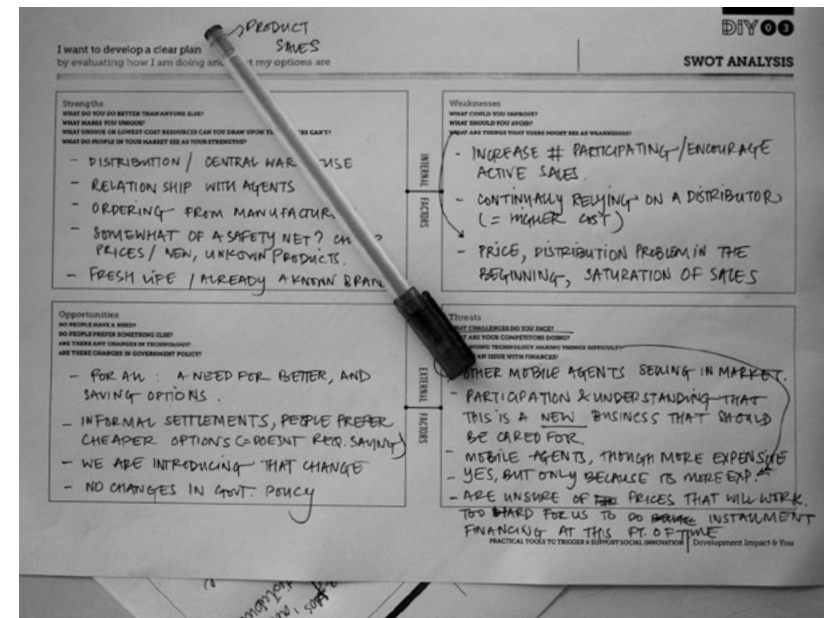 PRODUCT
SALES
DIY 03
I want to develop a clear plan
by evaluating how I am doing and my options are
SWOT ANALYSIS
Strengths
WHAT DO YOU DO BETTER THAN ANYONE ELSE?
WHAT MAKES YOU UNIQUE?
WHAT UNIQUE OR LOWEST COST RESOURCES CAN YOU DRAW UPON CAN'T?
WHAT DO PEOPLE IN YOUR MARKET SEE AS YOUR STRENGTHS?
- DISTRIBUTION / CENTRAL
- RELATION SHIP WITH AGENTS
- ORDERING FROM
- SOMEWHAT OF A SAFETY NET?
PRICES / NEW, UNKOWN PRODUCTS.
- FRESH LIFE / ALREADY A KNOWN
INTERNAL FACTORS
Weaknesses
WHAT COULD YOU IMPROVE?
WHAT SHOULD YOU AVOID?
WHAT ARE THINGS THAT USERS MIGHT SEE AS WEAKNESSES?
- INCREASE # PARTICIPATING / ENCOURAGE
ACTIVE SALES.
- CONTINUALLY RELYING ON A DISTRIBUTOR
(= HIGHER COST)
- PRICE, DISTRIBUTION PROBLEM IN THE
BEGINNING, SATURATION OF SALES
Opportunities
DO PEOPLE HAVE A NEED?
DO PEOPLE PREFER SOMETHING ELSE?
ARE THERE ANY CHANGES IN TECHNOLOGY?
ARE THERE CHANGES IN GOVERNMENT POLICY?
- FOR ALL : A NEED FOR BETTER, AND
SAVING OPTIONS.
- INFORMAL SETTLEMENTS, PEOPLE PREFER
CHEAPER OPTIONS (= DOESNT REQ. SAVING)
- WE ARE INTRODUCING THAT CHANGE
- NO CHANGES IN GOVT. POLICY
EXTERNAL FACTORS
Threats
WHAT CHALLENGES DO YOU FACE?
ARE YOUR COMPETITORS DOING?
TECHNOLOGY MAKING THINGS DIFFICULT?
AN ISSUE WITH FINANCES?
OTHER MOBILE AGENTS SELLING IN MARKET.
- PARTICIPATION & UNDERSTANDING THAT
THIS IS A NEW BUSINESS THAT SHOULD
BE CARED FOR.
- MOBILE AGENTS, THOUGH MORE EXPENSIVE
- YES, BUT ONLY BECAUSE ITS MORE EXP.
- ARE UNSURE OF PRICES THAT WILL WORK.
TOO HARD FOR US TO DO INSTALLMENT
FINANCING AT THIS PT. OF TIME
PRACTICAL TOOLS TO TRIGGER & SUPPORT SOCIAL INNOVATION | Development Impact & You